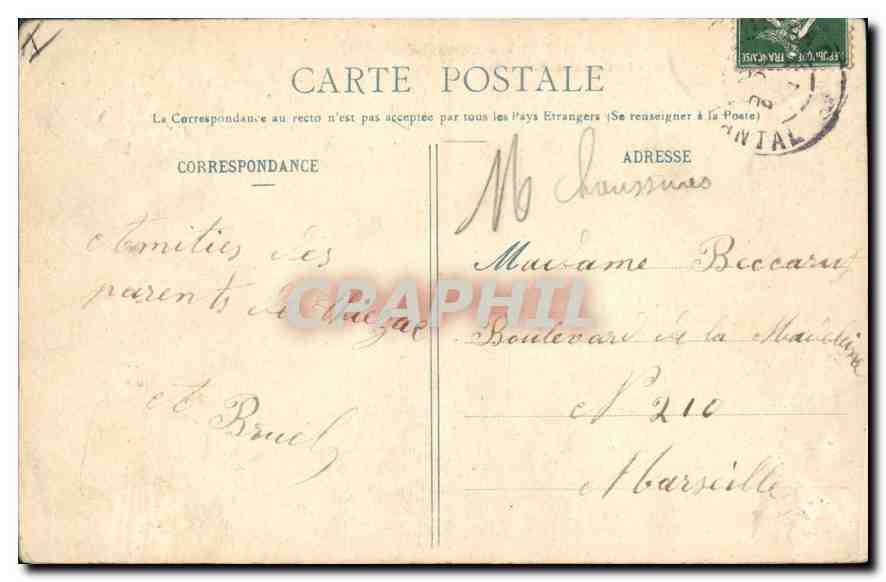 REPUBLIQUE FRANÇAISE
CARTE POSTALE
La Correspondance au recto n'est pas acceptée par tous les Pays Etrangers (Se renseigner à la Poste)
NTAL
CORRESPONDANCE
Amitiés des
parents de Thiézac
A. Bruel
ADRESSE
M Chaussures
Madame Beccarut
Boulevard de la Madeleine
N° 210
Marseille
CRAPHIL